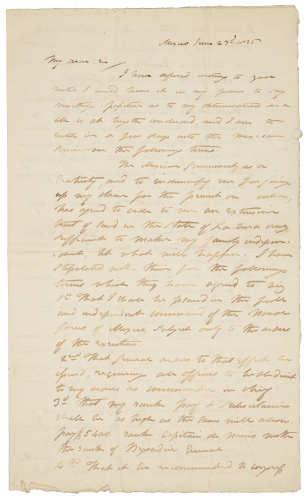 Mexico June 27th 1826
My dear Sir
I have defered writing to you
until I could have it in my power to say
something positive as to my determinations
is at length concluded, and I am to
enter in a few days into the Mexican
Service on the following terms.
The Mexican Government as a
gratuity and to indemnify me for giving
up my
for the present
has agreed to cede to me an extensive
tract of land in the State of
sufficient to make my family indepen-
dent let what will happen. I have
stipulated with them for the following
terms which they have agreed to viz
1st That I shall be placed in the full
and independent command of the Naval
forces of Mexico Subject only to the orders
of the executive
2nd That general orders to that effect be
issued, requiring all officers to be obedient
to my orders as commander in chief
3d that my rank pay & subsistence
shall be as high as the laws will allow
pay $5400 rank Capitan de Navio with
the rank of Brigadier General
4th That it be recommended to congress